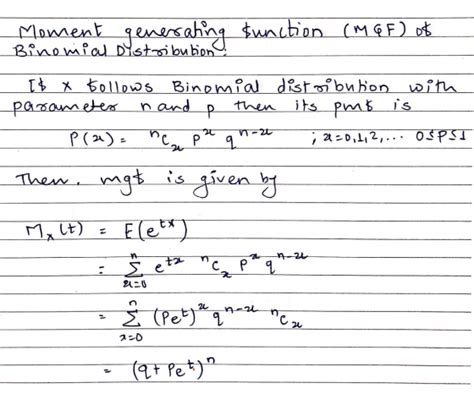 Moment generating function (MGF) of
Binomial Distribution:
If x follows Binomial distribution with
parameter n and p then its pmf is
P(x) = ⁿCₓ pˣ qⁿ⁻ˣ ; x=0,1,2,... 0≤P≤1
Then, mgf is given by
Mₓ(t) = E(eᵗˣ)
= Σₓ₌₀ⁿ eᵗˣ ⁿCₓ pˣ qⁿ⁻ˣ
= Σₓ₌₀ⁿ (Peᵗ)ˣ qⁿ⁻ˣ ⁿCₓ
= (q + Peᵗ)ⁿ